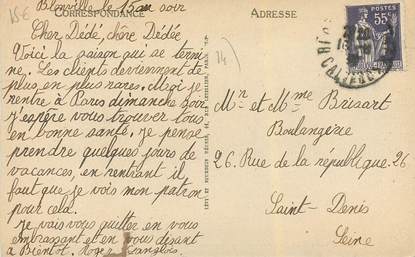 15€
Blonville le 15 au soir
CORRESPONDANCE
ADRESSE
Cher Dédé, chère Dédée
Voici la saison qui se termi
ne. Les clients deviennent de
plus en plus rares. Moi je
rentre à Paris dimanche soir
j'espère vous trouver tous
en bonne santé. je pense
prendre quelques jours de
vacances, en rentrant il
faut que je vois mon patron
pour cela.
je vais vous quitter en vous
embrassant et en vous disant
à Bientôt. Roger Langlois.
14)
POSTES
55c
CALVADOS
Mr et Mme Brisart
Boulangerie
26. Rue de la république. 26
Saint-Denis
Seine